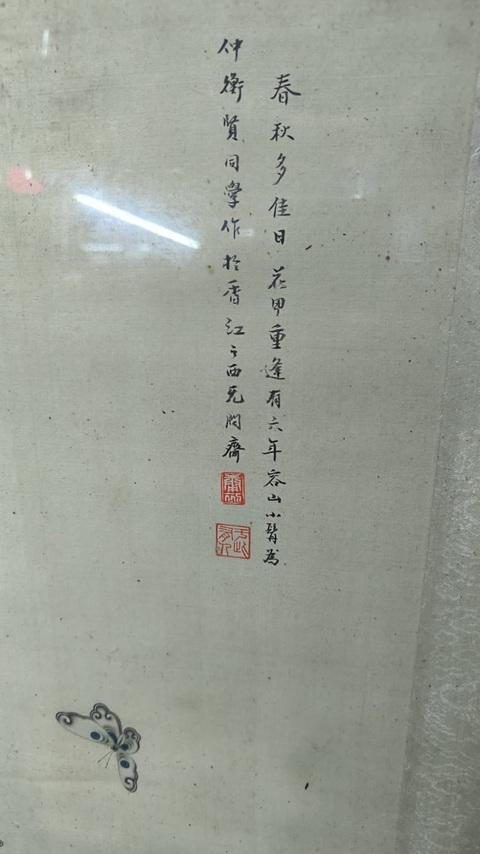 春秋多佳日花甲重逢有六年容山小髯為
仲衡賢同學作於香江之西无悶齋